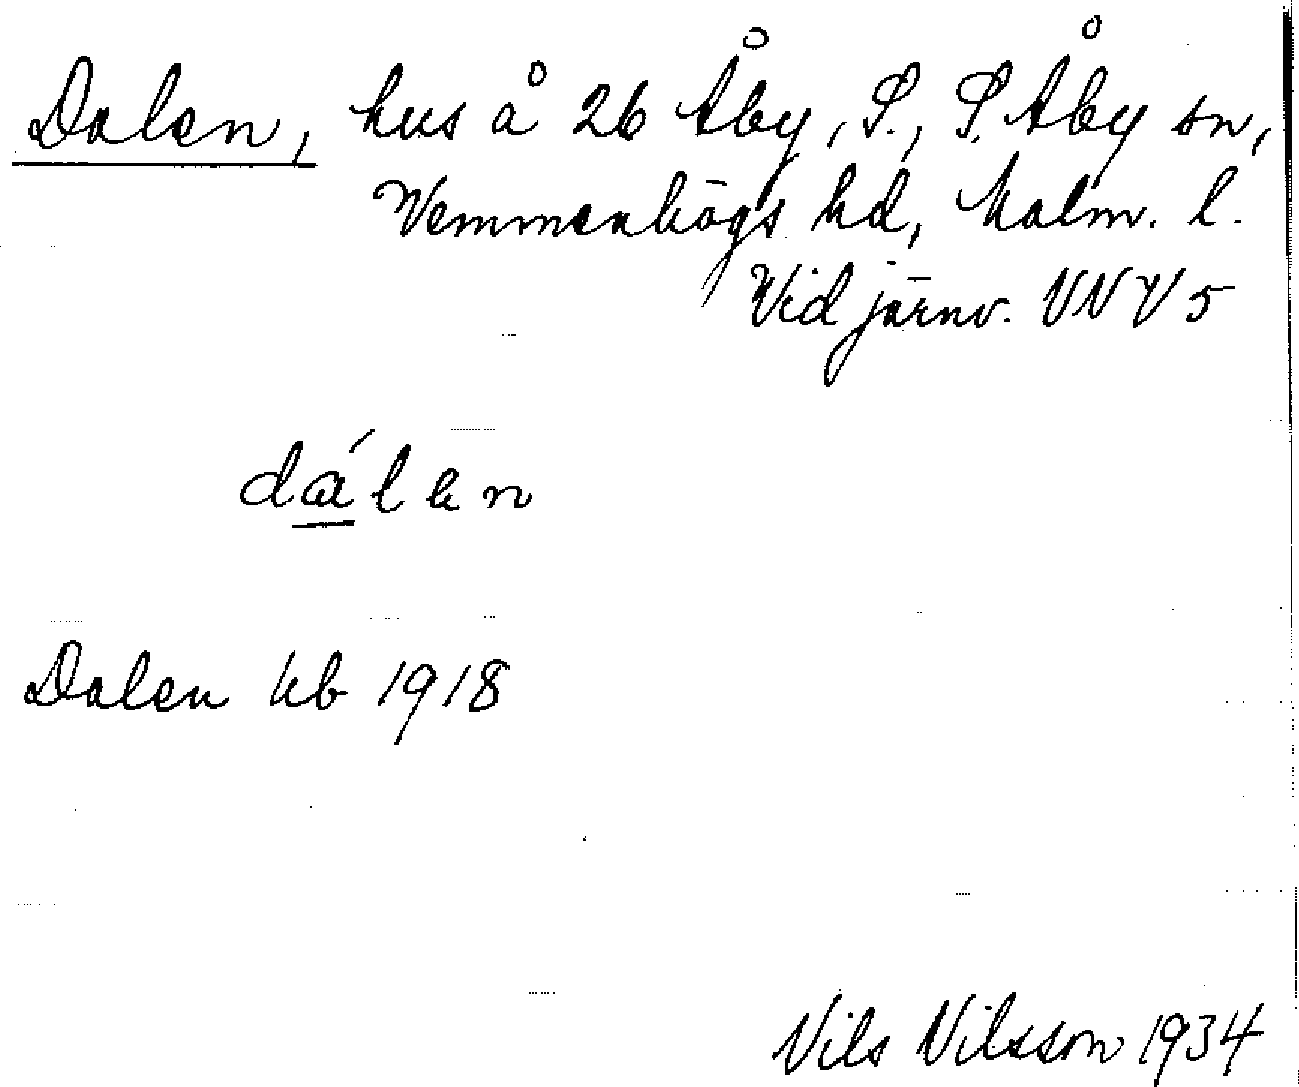 Dalen, hus å 26 Åby, S., S. Åby sn,
Vemmenhögs hd, Malm. l.
Vid järnv. VNV 5
dálen
Dalen kb 1918
Nils Nilsson 1934